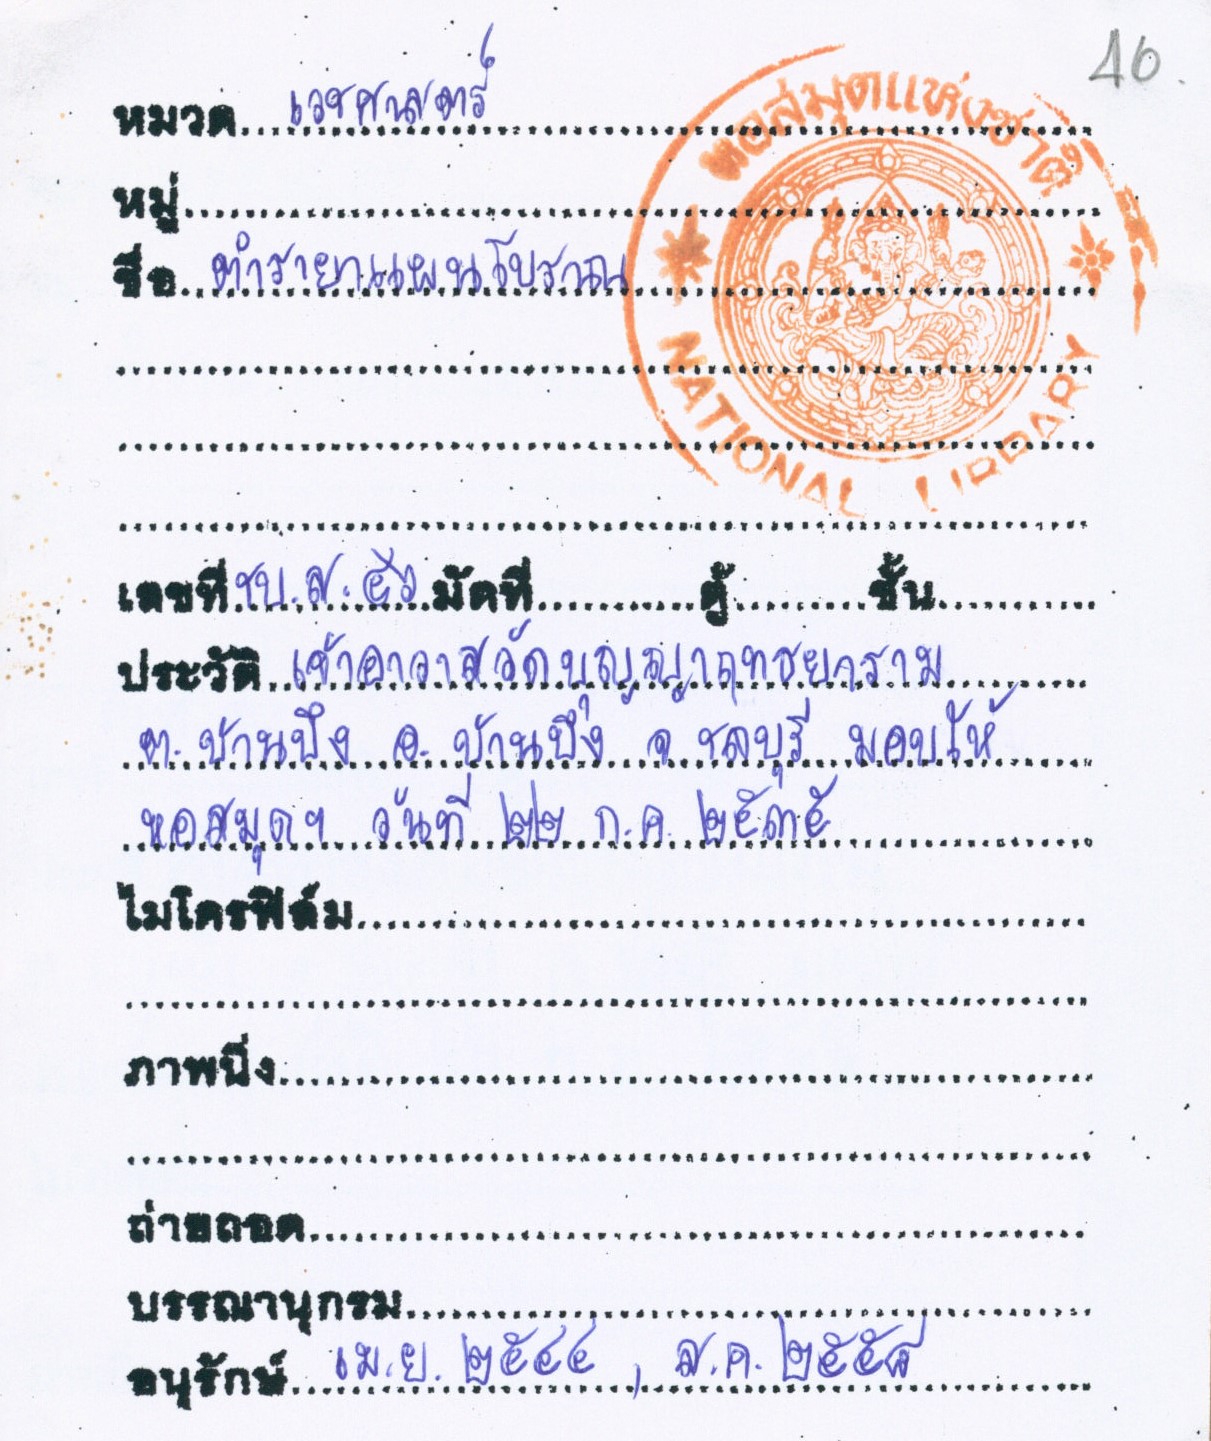 46
หมวด เวชศาสตร์
หอสมุดแห่งชาติ
หมู่
ชื่อ ตำรายาแผนโบราณ
NATIONAL LIBRARY
เลขที่ ชบ.ส. ๕๖ มัดที่ ตู้ ชั้น
ประวัติ เจ้าอาวาสวัดบุญญฤทธยาราม
ต. บ้านบึง อ. บ้านบึง จ ชลบุรี มอบให้
หอสมุดฯ วันที่ ๒๒ ก.ค. ๒๕๓๕
ไมโครฟิล์ม
ภาพนิ่ง
ถ่ายถอด
บรรณานุกรม
อนุรักษ์ เม.ย. ๒๕๔๔ , ส.ค. ๒๕๕๘